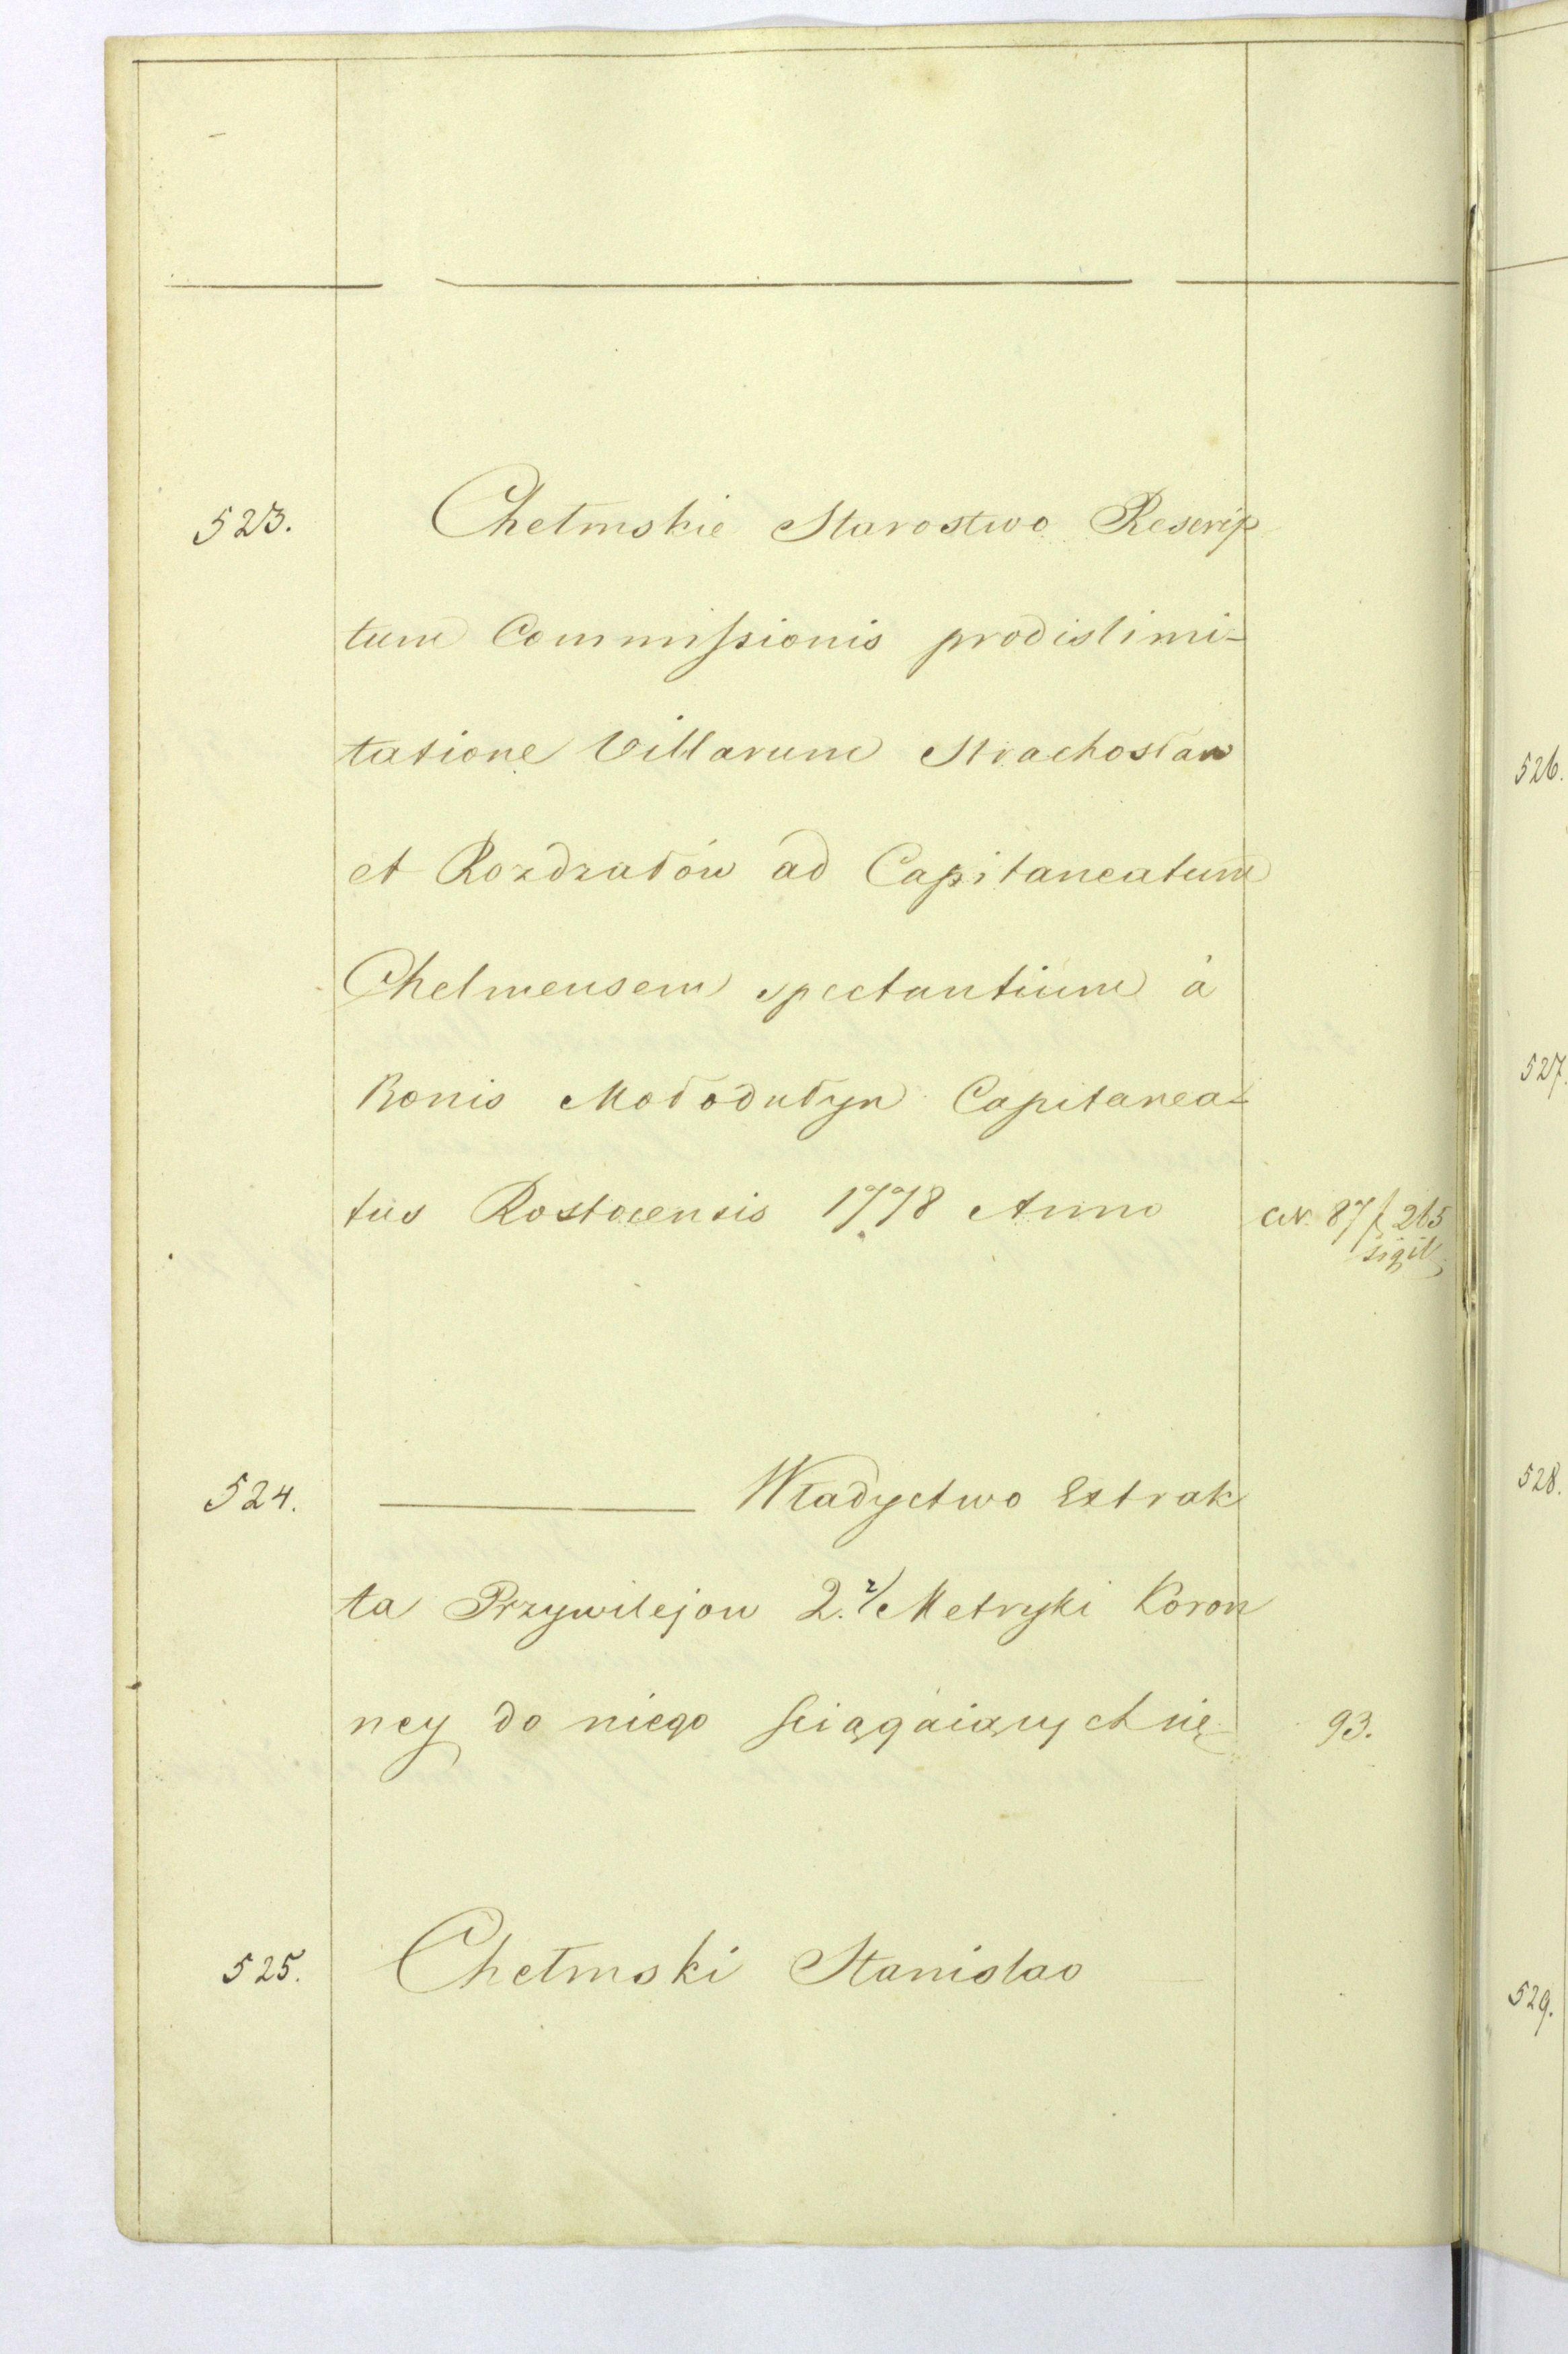 523. Chełmskie Starostwo Rescrip
tum Commissionis prodislimi-
tatione Villarum Strachosław
et Rozdzałów ad Capitaneatum
Chelmensem spectantium à
Bonis Mołodułyn Capitanea-
tus Rostocensis 1778 Anno
87 f 265
sigil
524. ——— Władyctwo Extrak
ta Przywilejow 2. z Metryki Koron
ney do niego ściągaiących się 93.
525. Chełmski Stanislao
526.
527.
528.
529.